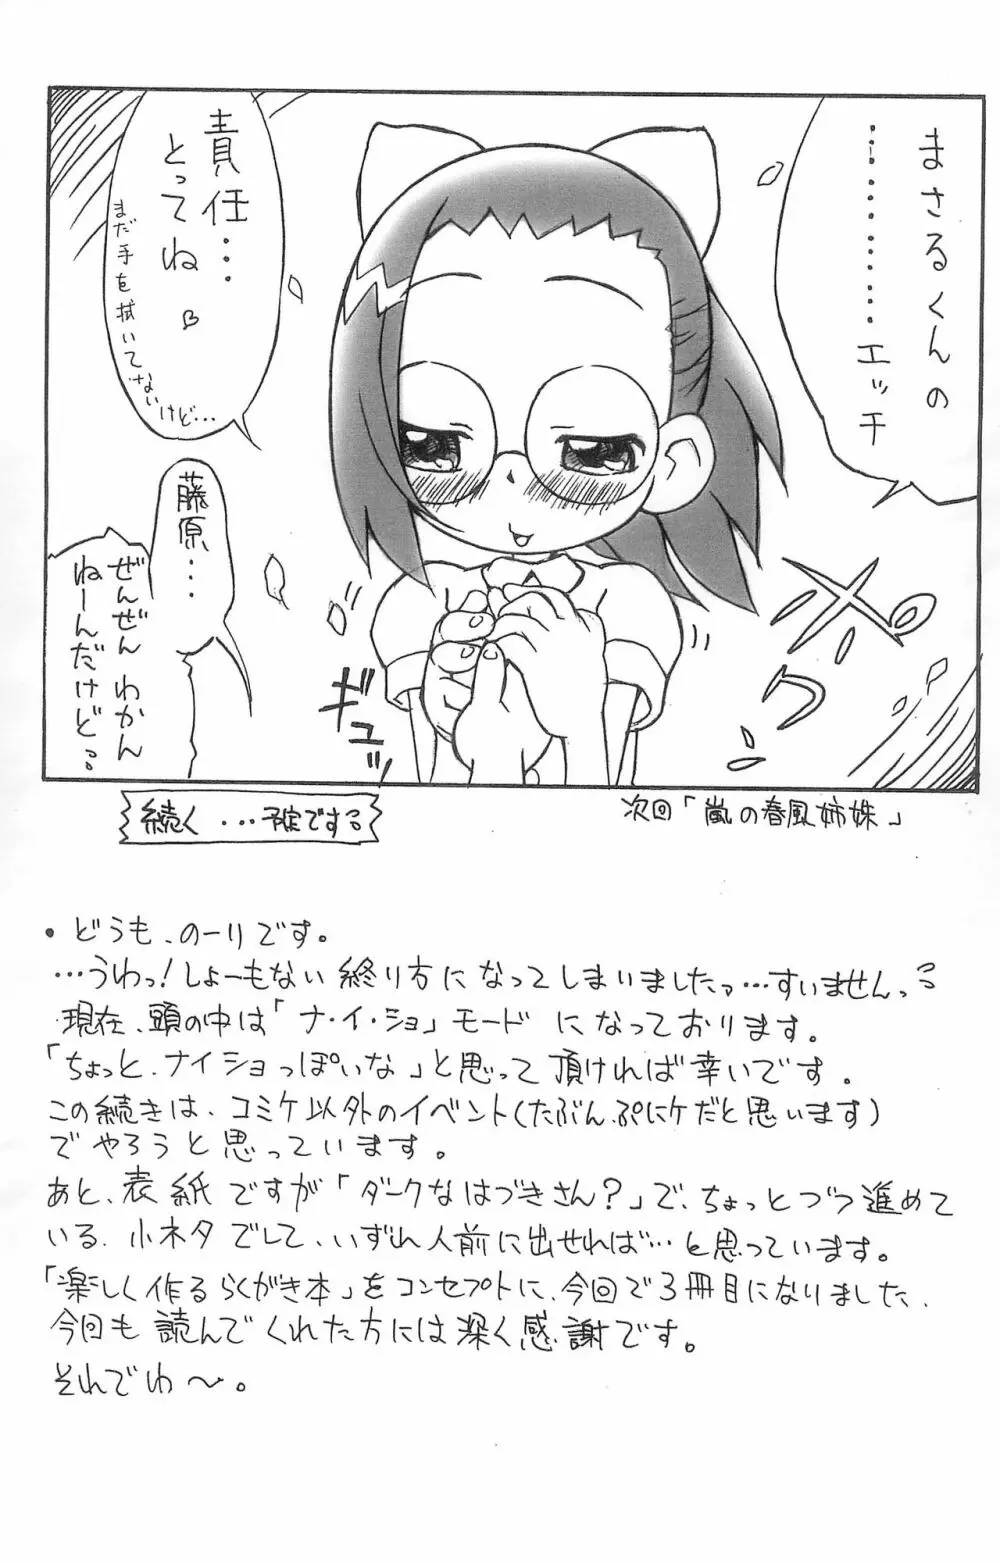 まさるくんの
…………エッチ
責任…
とってね♡
まだ手を拭いてないけど…
藤原…
ぜんぜんわかん
ねーんだけどっ
ギュッ
続く…予定ですっ
次回「嵐の春風姉妹」
・どうも、のーりです。
…うわっ!しょーもない終り方になってしまいましたッ…すいませんっ
現在、頭の中は「ナ・イ・ショ」モードになっております。
「ちょっと、ナイショっぽいな」と思って頂ければ幸いです。
この続きは、コミケ以外のイベント(たぶん、ぷにケだと思います)
でやろうと思っています。
あと、表紙ですが「ダークなはづきさん?」で、ちょっとづつ進めて
いる、小ネタでして、いずれ人前に出せれば…と思っています。
「楽しく作るらくがき本」をコンセプトに、今回で3冊目になりました、
今回も読んでくれた方には深く感謝です。
それでわ〜。